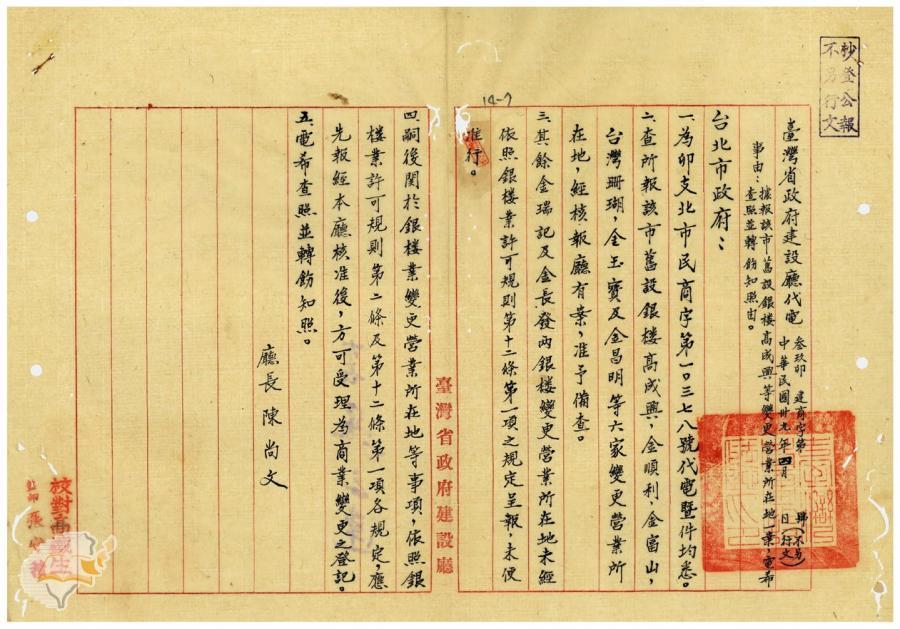 抄登公報
不另行文
臺灣省政府建設廳代電
叁玖卯 建商字第 號(不另行文)
中華民國卅九年四月 日
事由:據報該市舊設銀楼高成興等變更營業所在地一業,電希
查照並轉飭知照由。
台北市政府:
一、為卯支北市民商字第一〇三七八號代電暨件均悉。
二、查所報該市舊設銀楼高成興,金順利,金富山,
台灣珊瑚,金玉寶及金昌明等六家變更營業所
在地,經核報廳有案,准予備查。
三、其餘金瑞記及金長發两銀楼變更營業所在地未經
依照銀楼業許可規則第十二條第一項之規定呈報,未便
准行。
14-7
臺灣省政府建設廳
四、嗣後関於銀楼業變更營業所在地等事項,依照銀
楼業許可規則第二條及第十二條第一項各規定,應
先報經本廳核准後,方可受理為商業變更之登記。
五、電希查照並轉飭知照。
廳長 陳尚文
校對
監印